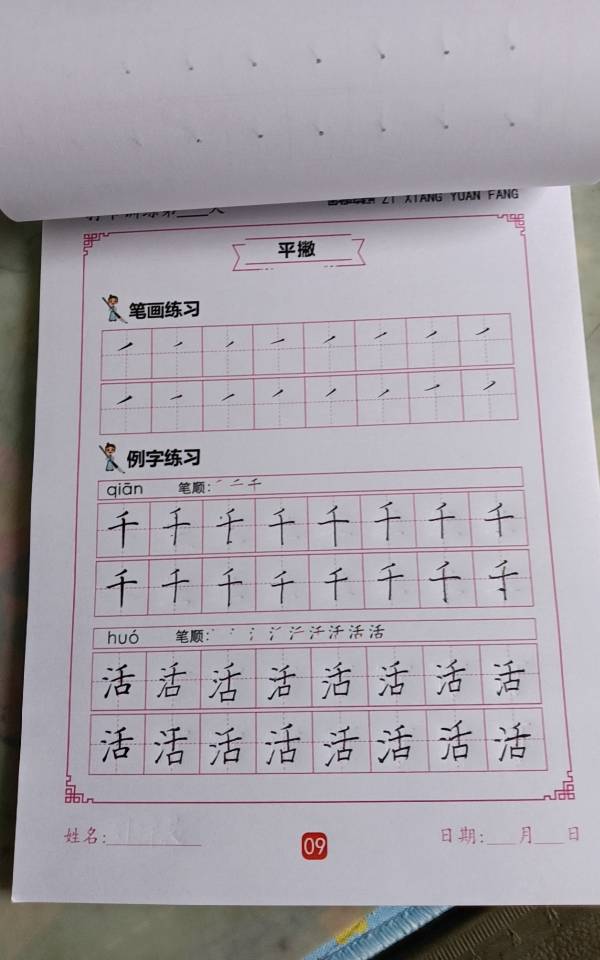 ZI XIANG YUAN FANG
平撇
笔画练习
例字练习
qiān 笔顺:
千 千 千 千 千 千 千 千
千 千 千 千 千 千 千 千
huó 笔顺:
活 活 活 活 活 活 活 活
活 活 活 活 活 活 活 活
姓名:
09
日期:___月___日